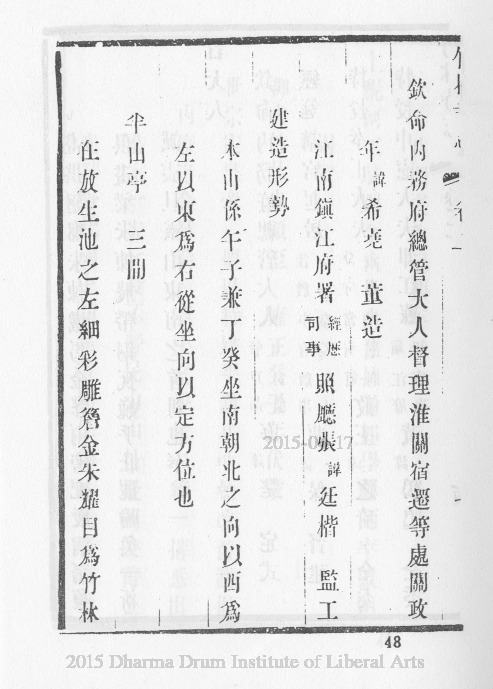 欽命內務府總管大人督理淮關宿遷等處關政
年諱希堯 董造
江南鎮江府署經歷司事照廳張諱廷楷 監工
建造形勢
本山係午子兼丁癸坐南朝北之向以西為
左以東為右從坐向以定方位也
半山亭 三間
在放生池之左細彩雕簷金朱耀目為竹林
2015-04-17
48
2015 Dharma Drum Institute of Liberal Arts